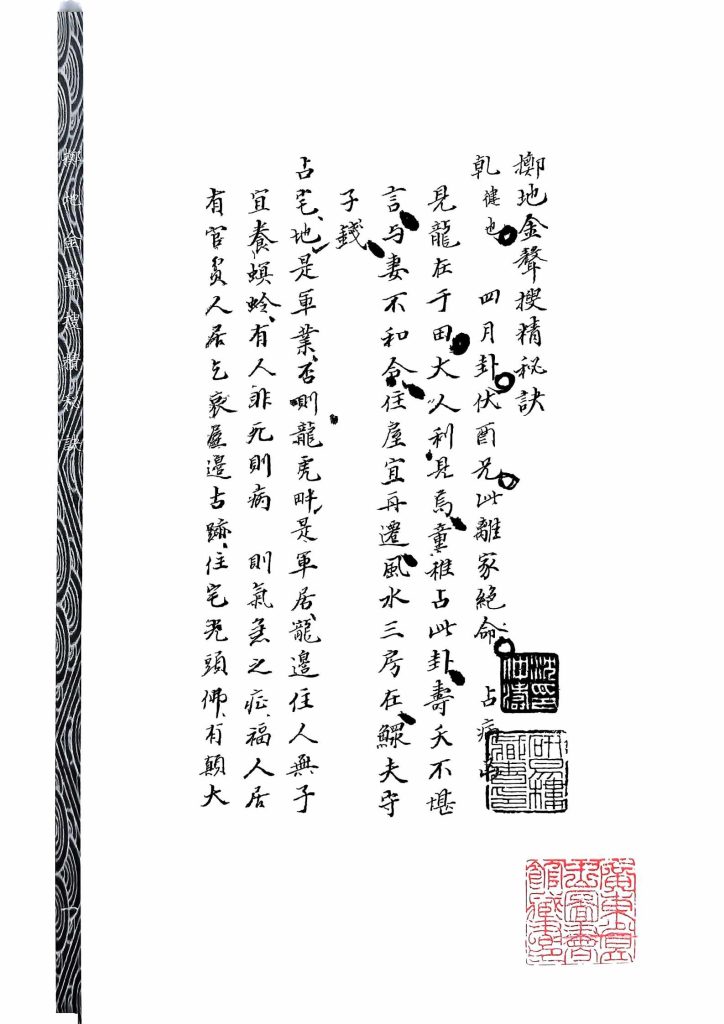 擲地金聲搜精秘訣
乾健也 四月卦伏酉兄此離家絕命 占病
見龍在于田大人利見焉童稚占此卦壽夭不堪
言与妻不和合住屋宜再遷風水三房在鰥夫守
子錢
占宅地是軍業否則龍虎畔是軍居龍邊住人無子
宜養螟蛉有人非死則病 則氣急之症福人居
有官員人居乞衰屋邊古跡住宅光頭佛有顛大
擲地金聲搜精秘訣
廣東省立圖書館藏書